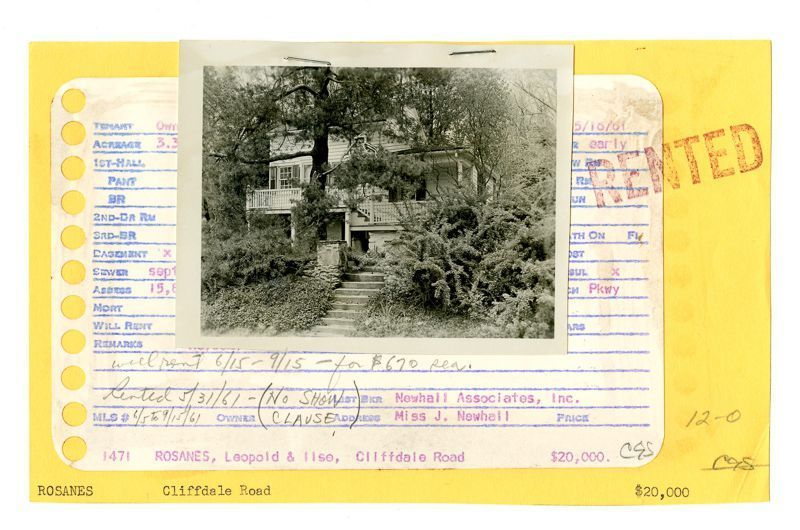 TENANT Own 5/16/61
ACREAGE 3.3 early
RENTED
1ST-HALL
PANT
BR UN
2ND-DR RM
3RD-BR TH ON FL
BASEMENT x OST
SEWER sept SUL x
ASSESS 15,8 CH Pkwy
MORT
WILL RENT ARS
REMARKS
will rent 6/15-9/15 - for $670 sea.
Rented 5/31/61 - (NO SHOW LIST BKR Newhall Associates, Inc.
MLS # 6/5 to 9/15/61 OWNER CLAUSE) ADDRESS Miss J. Newhall PRICE
12-0
1471 ROSANES, Leopold & Ilse, Cliffdale Road $20,000. CGS
CGS
ROSANES Cliffdale Road $20,000